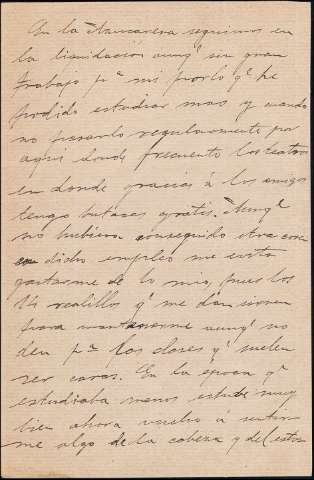 En la Azucarera seguimos en
la liquidación aunqᵉ sin gran
trabajo pᵃ mi por lo qᵉ he
podido estudiar mas y cuando
no pasarlo regularmente por
aqui donde frecuento los teatros
en donde gracias á los amigos
tengo butacas gratis. Aunqᵉ
no hubiera conseguido otra cosa
en dicho empleo me evita
gastarme de lo mio, pues los
14 realillos qᵉ me dan sirven
para mantenerme aunqᵉ no
den pᵃ las clases qᵉ suelen
ser caras. En la epoca qᵉ
estudiaba menos estube muy
bien ahora vuelvo á sentir
me algo de la cabeza y del esto